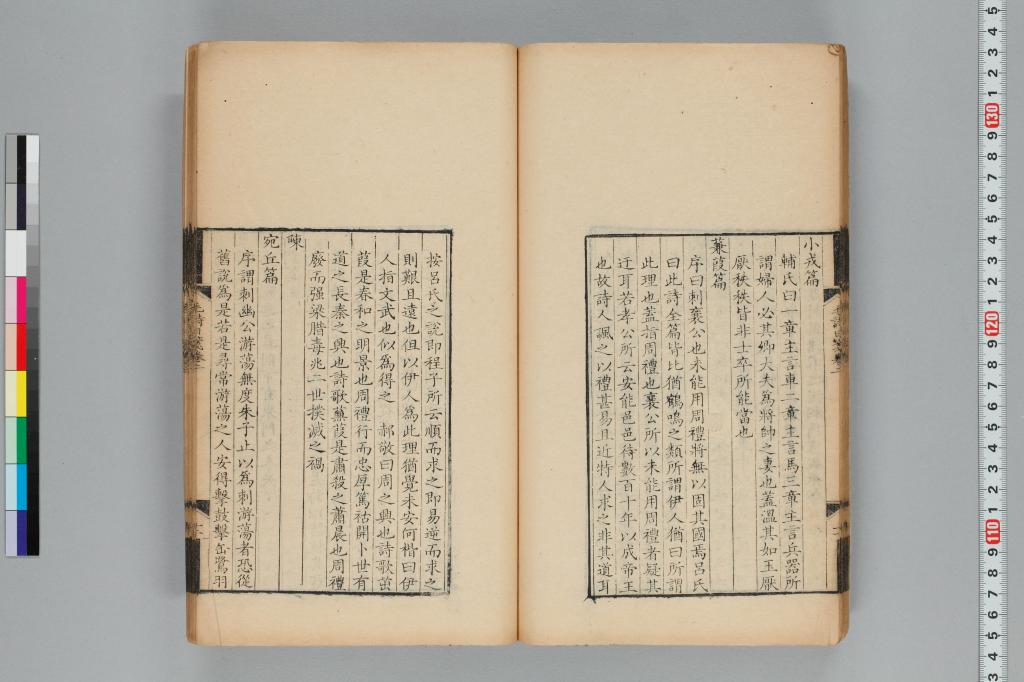 小戎篇
輔氏曰一章主言車二章主言馬三章主言兵器所
謂婦人必其卿大夫為將帥之妻也蓋溫其如玉厭
厭秩秩皆非士卒所能當也
蒹葭篇
序曰刺襄公也未能用周禮將無以固其國焉呂氏
曰此詩全篇皆比猶鶴鳴之類所謂伊人猶曰所謂
此理也蓋指周禮也襄公所以未能用周禮者疑其
迂耳若孝公所云安能邑邑待數百十年以成帝王
也故詩人諷之以禮甚易且近特人求之非其道耳
按呂氏之說即程子所云順而求之即易逆而求之
則艱且遠也但以伊人為此理猶覺未安何楷曰伊
人指文武也似為得之 郝敬曰周之興也詩歌茁
葭是春和之明景也周禮行而忠厚篤祜開卜世有
道之長秦之興也詩歌蒹葭是肅殺之蕭晨也周禮
廢而强梁腊毒兆二世撲滅之禍
陳
宛丘篇
序謂刺幽公游蕩無度朱子止以為刺游蕩者恐從
舊說為是若是尋常游蕩之人安得擊鼓擊缶鷺羽